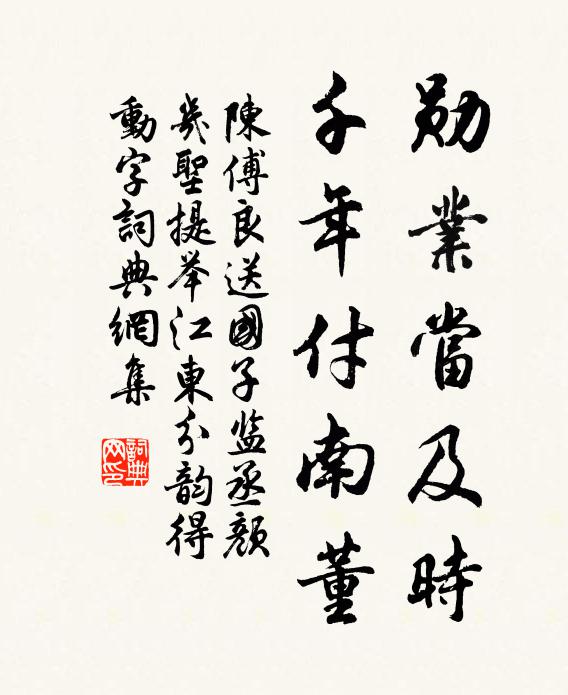 勛業當及時
千年付南董
陳傅良送國子监丞顏
幾聖提举江東分韵得
動字詞典網集
詞典
网印